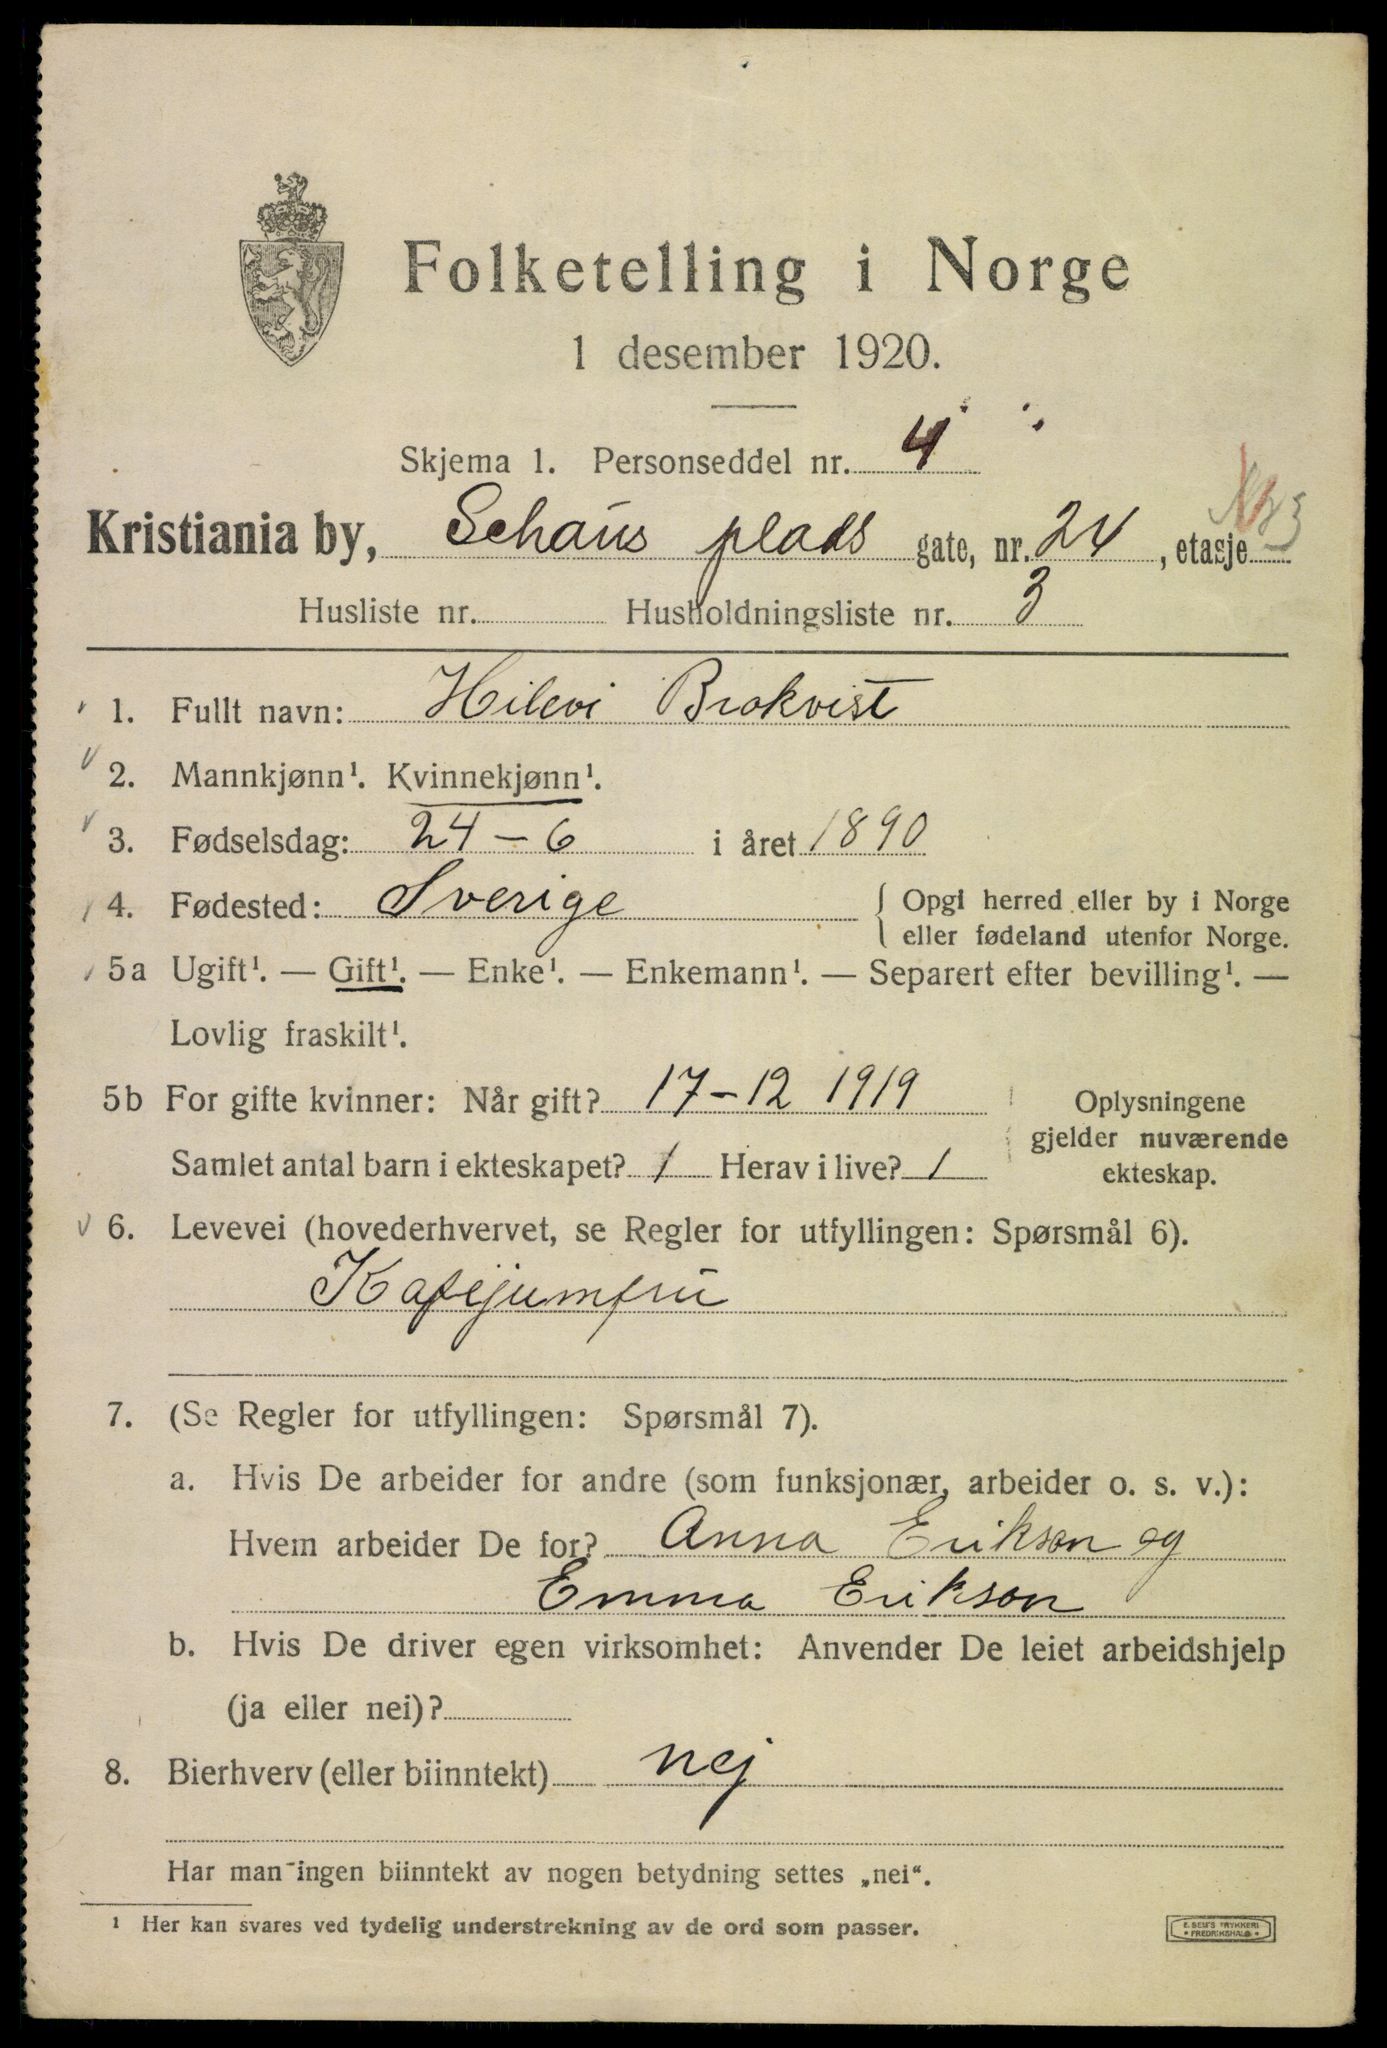 Folketelling i Norge
1 desember 1920.
Skjema 1. Personseddel nr. 4
Kristiania by, Schaus plads gate, nr. 24, etasje
Husliste nr. Husholdningsliste nr. 3
1. Fullt navn: Hilevi Brokvist
2. Mannkjønn¹. Kvinnekjønn¹.
3. Fødselsdag: 24-6 i året 1890
4. Fødested: Sverige { Opgi herred eller by i Norge
eller fødeland utenfor Norge.
5a Ugift¹. — Gift¹. — Enke¹. — Enkemann¹. — Separert efter bevilling¹. —
Lovlig fraskilt¹.
5b For gifte kvinner: Når gift? 17-12 1919 Oplysningene
gjelder nuværende
Samlet antal barn i ekteskapet? 1 Herav i live? 1 ekteskap.
6. Levevei (hovederhvervet, se Regler for utfyllingen: Spørsmål 6).
Kafejumfru
7. (Se Regler for utfyllingen: Spørsmål 7).
a. Hvis De arbeider for andre (som funksjonær, arbeider o. s. v.):
Hvem arbeider De for? Anna Erikson og
Emma Erikson
b. Hvis De driver egen virksomhet: Anvender De leiet arbeidshjelp
(ja eller nei)?
8. Bierhverv (eller biinntekt) nej
Har man ingen biinntekt av nogen betydning settes „nei“.
¹ Her kan svares ved tydelig understrekning av de ord som passer.
E. SEM'S TRYKKERI
* FREDRIKSHALD *